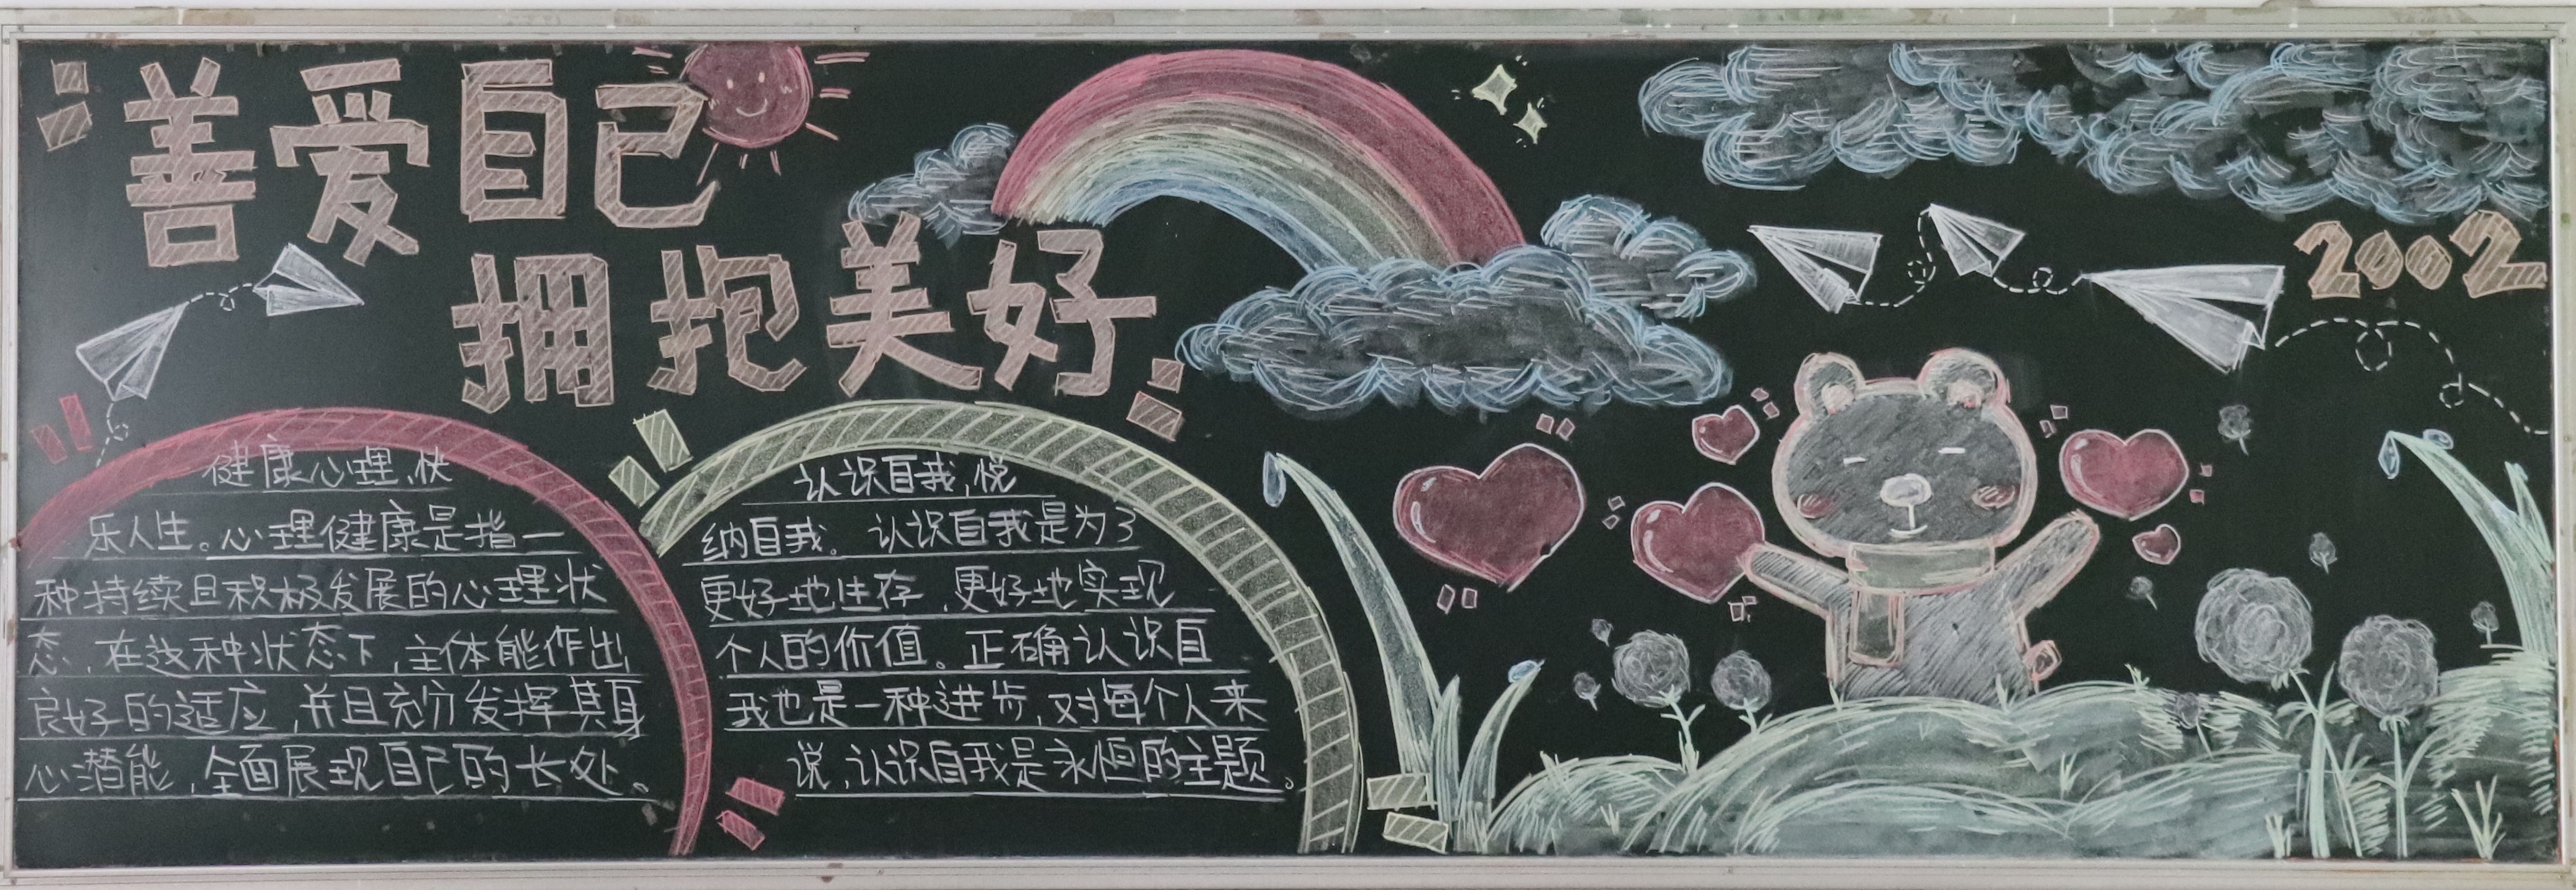 善爱自己
拥抱美好
2002
健康心理,快
乐人生。心理健康是指一
种持续且积极发展的心理状
态,在这种状态下,主体能作出
良好的适应,并且充分发挥其身
心潜能,全面展现自己的长处。
认识自我,悦
纳自我。认识自我是为了
更好地生存,更好地实现
个人的价值。正确认识自
我也是一种进步,对每个人来
说,认识自我是永恒的主题。